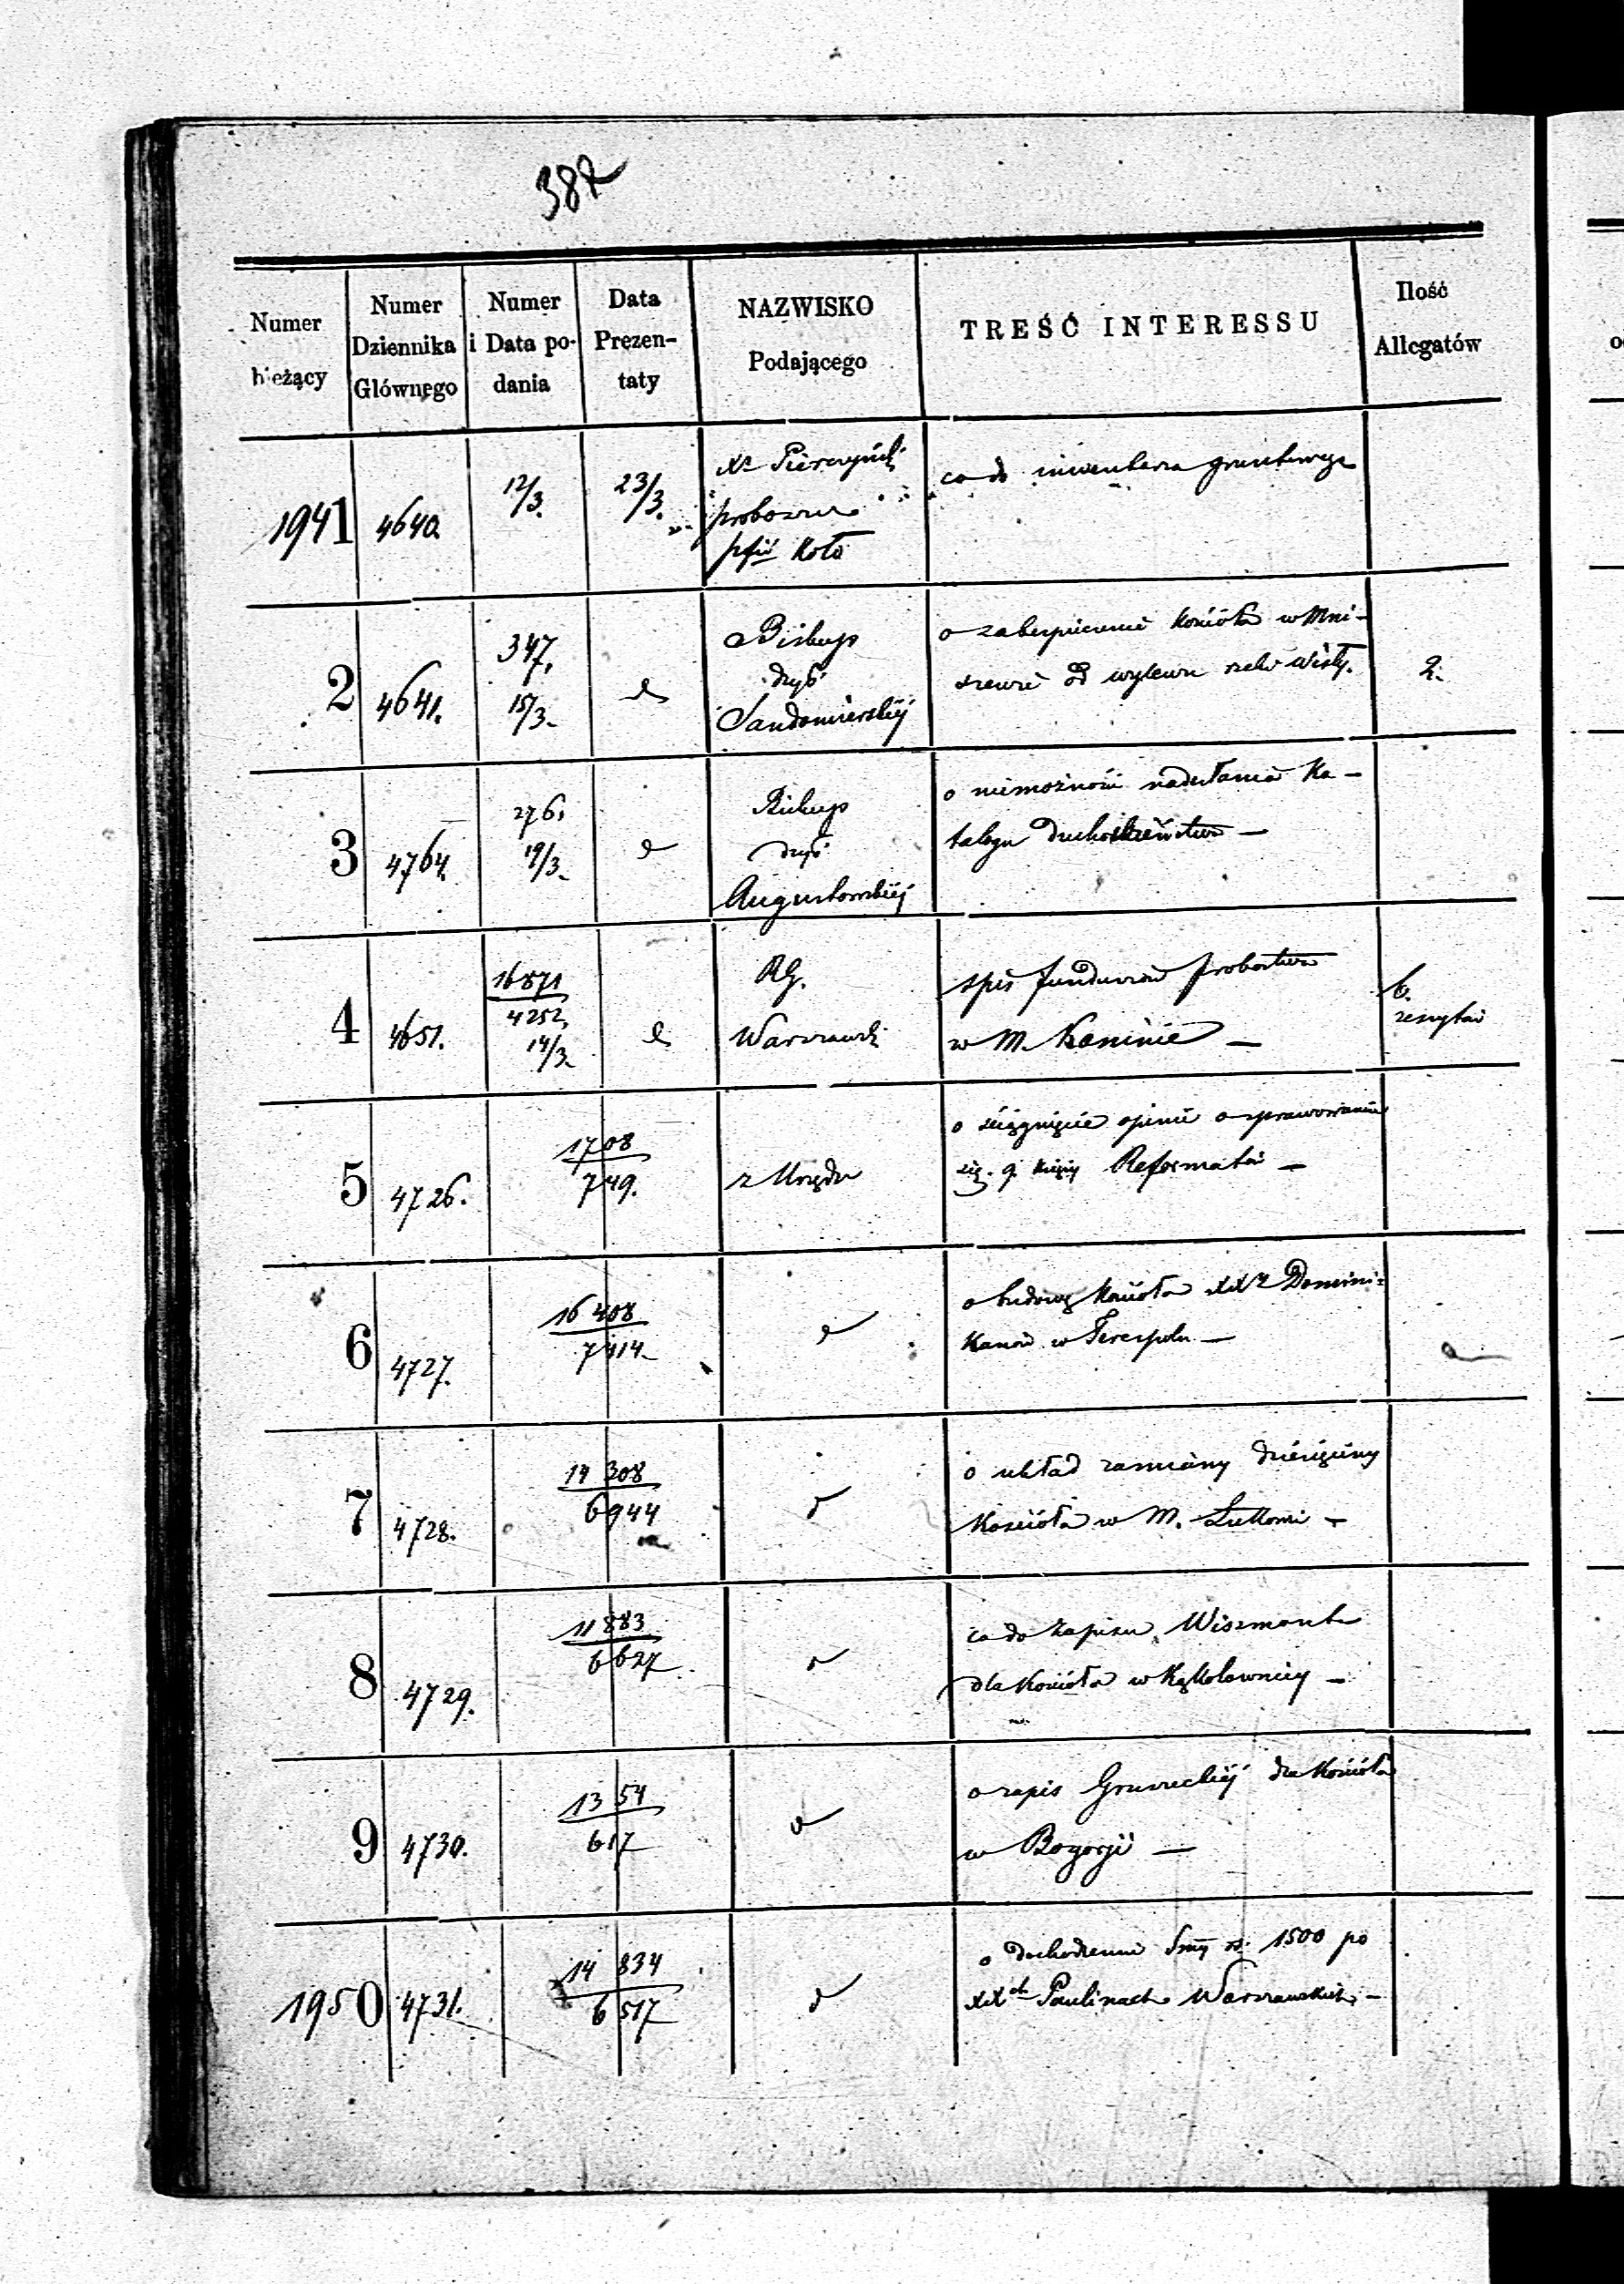 387
Numer bieżący
Numer Dziennika Głównego
Numer i Data podania
Data Prezentaty
NAZWISKO Podającego
TREŚĆ INTERESSU
Ilość Allegatów
1941 4640. 12/3. 23/3.
proboszcz
pfii Koło
co do inwentarza gruntowego
2 4641. 347. 15/3.
Biskup
dyć
Sandomierskiéj
o zabezpieczenie kościoła w Mni-
szewie od wylewu rzeki Wisły.
2.
3 4764. 276. 19/3.
Biskup
dyć
Augustowskiéj
o niemożności nadesłania Ka-
talogu duchowieństwa —
4 4651. 16871 4252. 14/3.
RG.
Warszawski
spis funduszów probostwa
w M. Koninie —
6.
zeszytów
5 4726. 1708 749.
z Urzędu
o ściągnięcie opinii o sprawowaniu
się Xięży Reformatów —
6 4727. 16408 7414.
o budowę kościoła XX Domini-
kanów w Terespolu —
7 4728. 14308 6944
o układ zamiany dziesięciny
Kościoła w M.
8 4729. 11883 6627
co do zapisu Wiszmonta
dla Kościoła w Kąkolownicy —
9 4730. 1354 617
o zapis dla Kościoła
w Bogorji —
1950 4731. 14834 6517
o dochodzeniu Smy rs. 1500 po
XXch Paulinach Warszawskich —